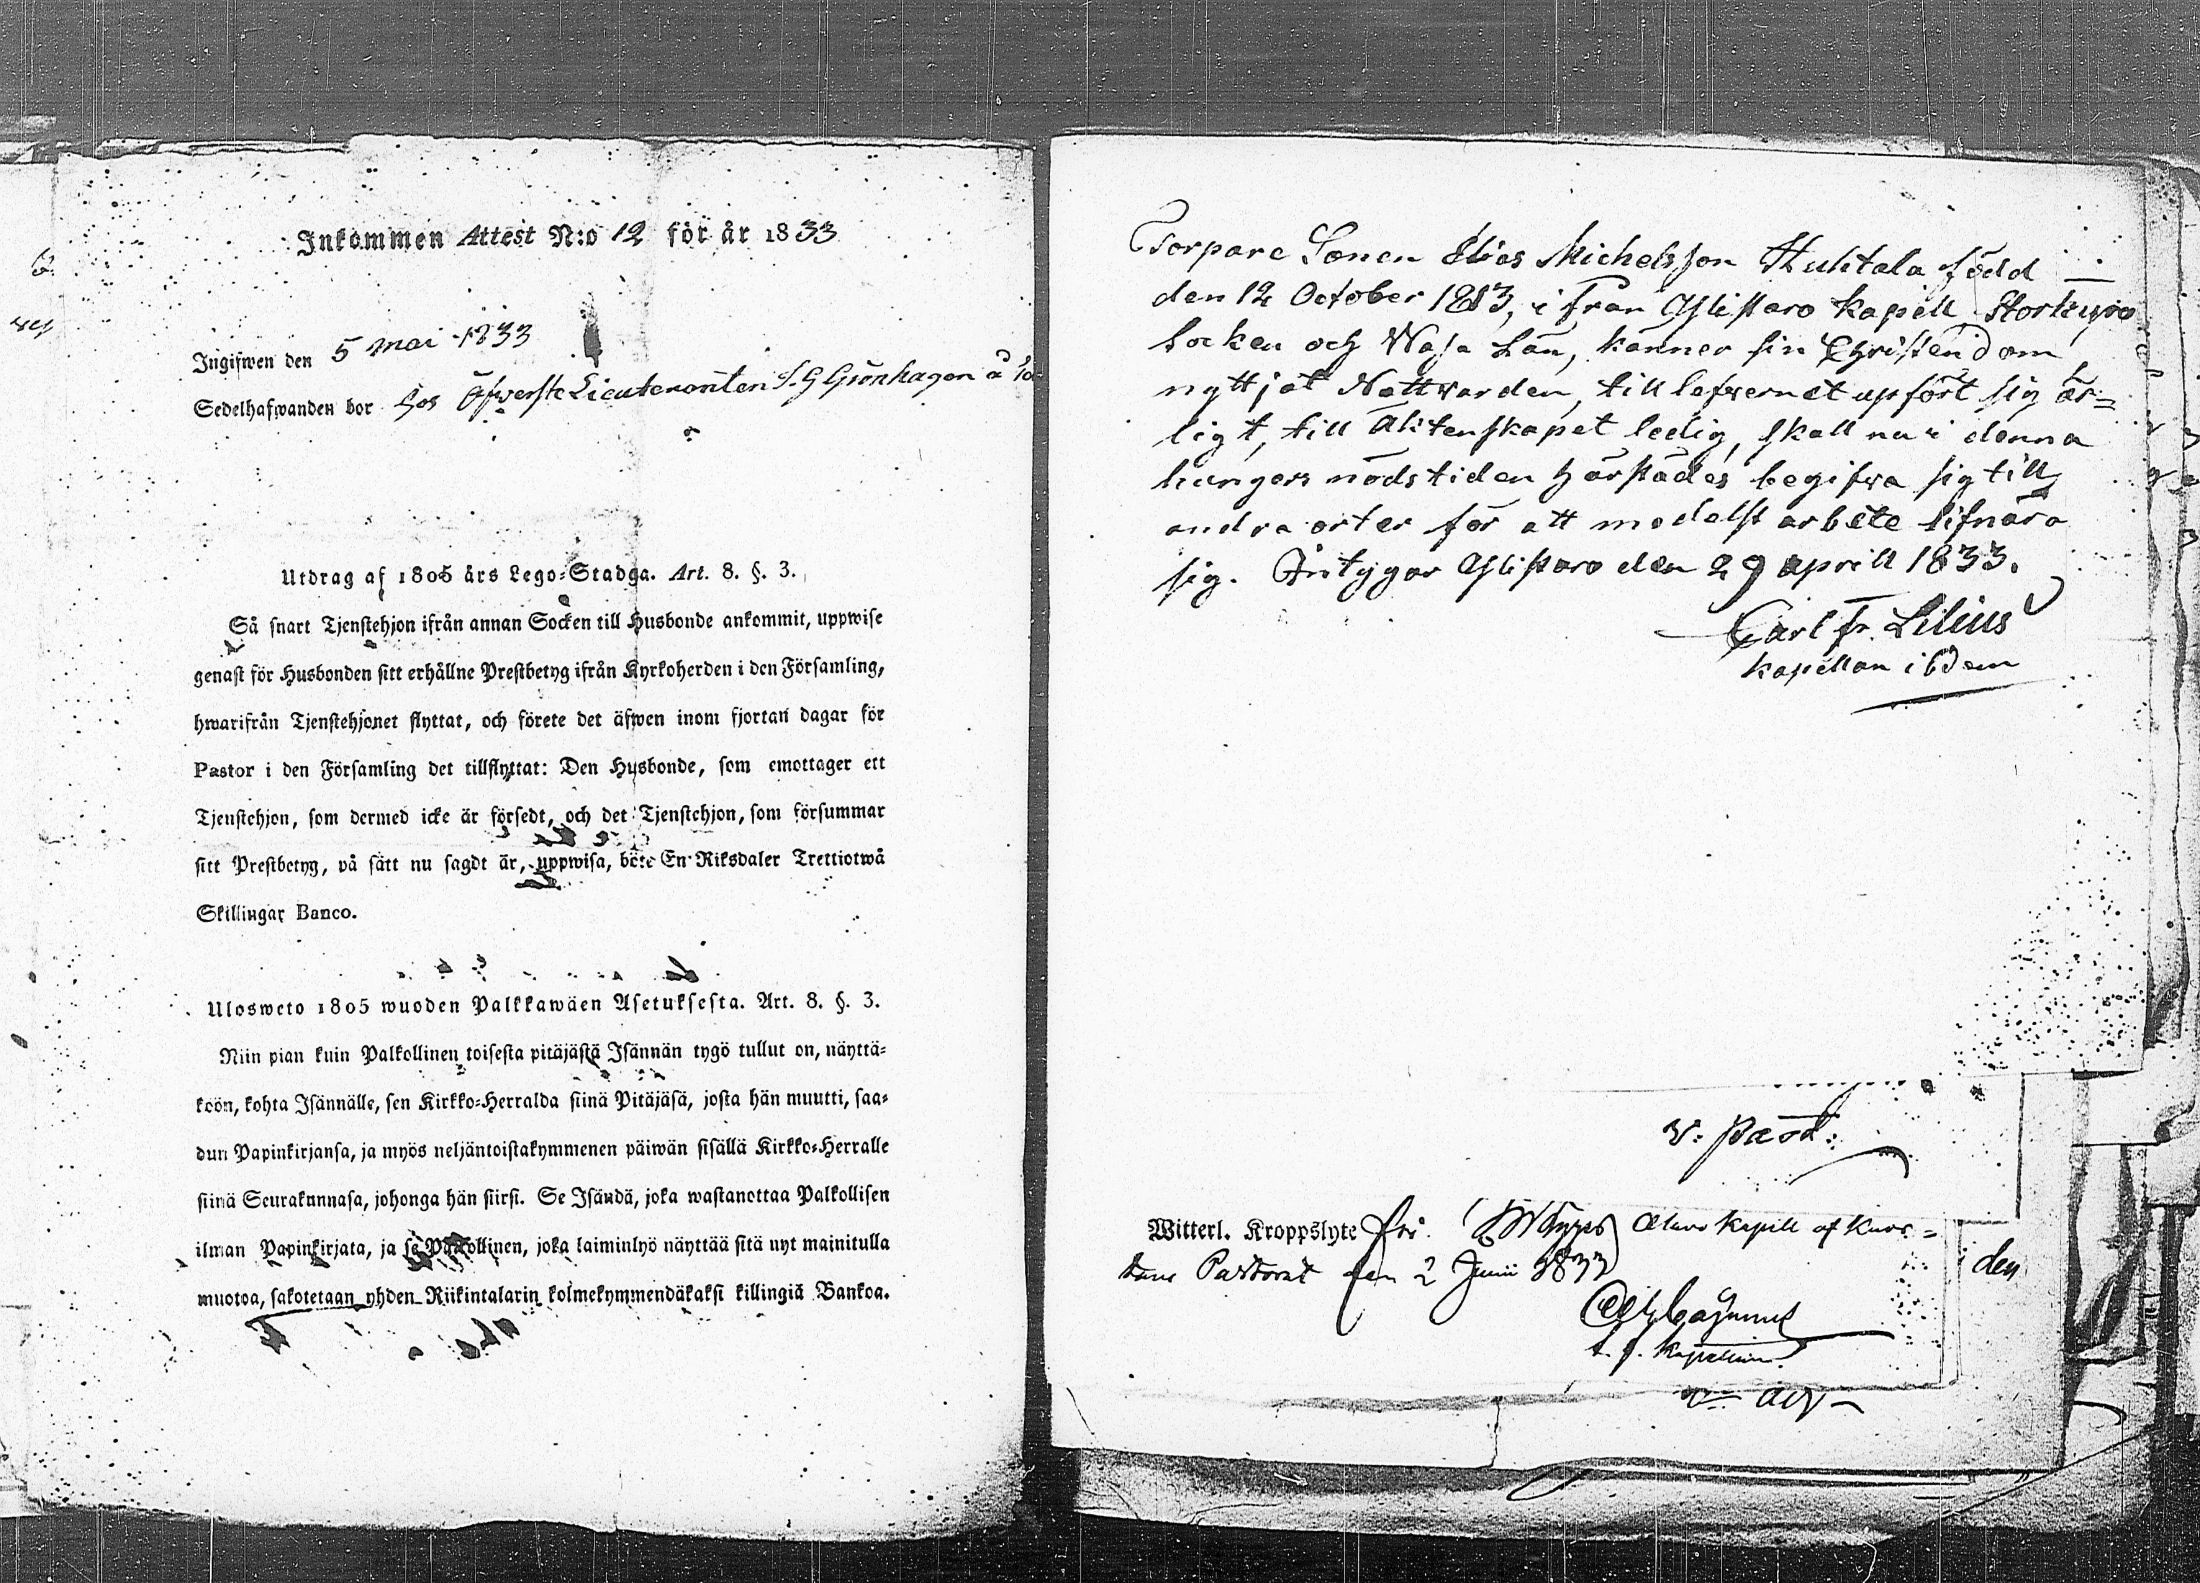 Inkommen Attest N:o 12 för år 1833
Ingifwen den 5 mai 1833
Sedelhafwanden bor hos Öfwerste Lieutenanten S. G Grönhagen å
Utdrag af 1805 års Lego-Stadga. Art. 8. §. 3.
Så snart Tjenstehjon ifrån annan Socken till Husbonde ankommit, uppwise
genast för Husbonden sitt erhållne Prestbetyg ifrån Kyrkoherden i den Församling,
hwarifrån Tjenstehjonet flyttat, och förete det äfwen inom fjortan dagar för
Pastor i den Församling det tillflyttat: Den Husbonde, som emottager ett
Tjenstehjon, som dermed icke är försedt, och det Tjenstehjon, som försummar
sitt Prestbetyg, på sätt nu sagdt är, uppwisa, böte En Riksdaler Trettiotwå
Skillingar Banco.
Ulosweto 1805 wuoden Palkkawäen Asetuksesta. Art. 8. §. 3.
Niin pian kuin Palkollinen toisesta pitäjästä Isännän tygö tullut on, näyttä-
köön, kohta Isännälle, sen Kirkko-Herralda siinä Pitäjäsä, josta hän muutti, saa-
dun Papinkirjansa, ja myös neljäntoistakymmenen päiwän sisällä Kirkko-Herralle
siinä Seurakunnasa, johonga hän siirsi. Se Isändä, joka wastanottaa Palkollisen
ilman Papinkirjata, ja se Palkollinen, joka laiminlyö näyttää sitä nyt mainitulla
muotoa, sakotetaan yhden Riikintalarin kolmekymmendäkaksi killingiä Bankoa.
Torpare Sonen Elias Michelsson Huhtala född
den 12 October 1813, i från Ylistaro Kapell Storkyro
Socken och Wasa Län, känner sin Christendom
nyttjat Nattvarden, till lefvernet upfört sig är-
ligt, till Äktenskapet ledig, skall nu i denna
hungers nöds tiden härstädes begifva sig till
andra orter för att medelst arbete lifnära
sig. Intygar Ylistaro den 29 aprill 1833.
Carl Fr. Lilius
Kapellan ibidem
v: Past:
Witterl. Kroppslyte fri. Kapell af
Pastorat den 2 Junii 1833
t. f. Kapellan.
den